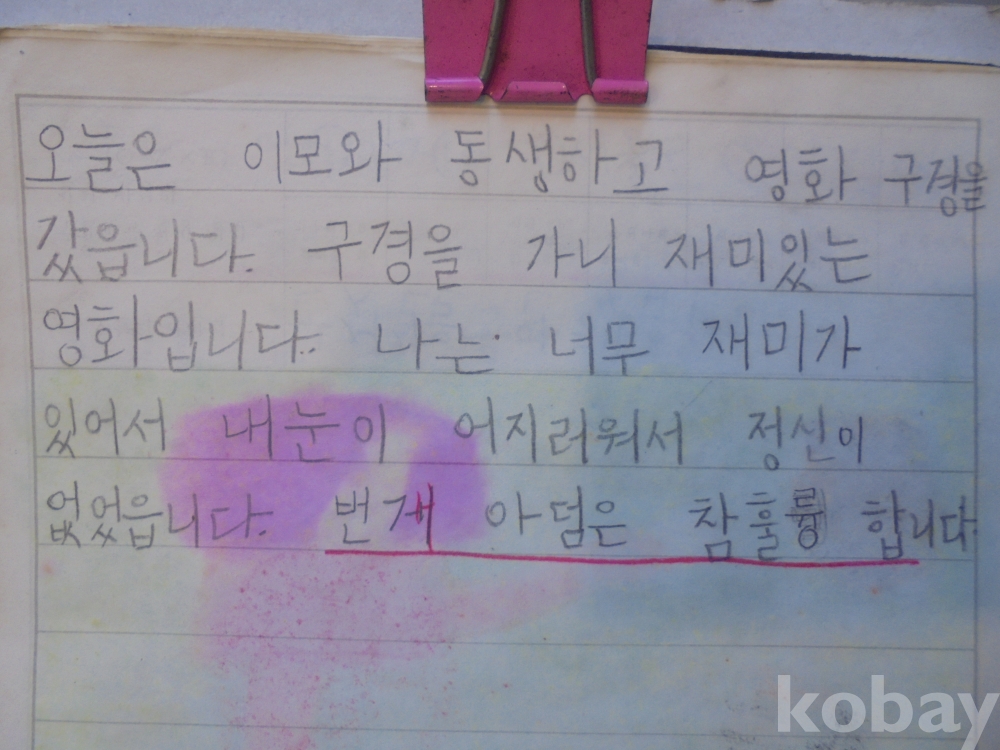 오늘은 이모와 동생하고 영화 구경을
갔읍니다. 구경을 가니 재미있는
영화입니다. 나는 너무 재미가
있어서 내눈이 어지러워서 정신이
없었읍니다. 번개 아덤은 참훌륭 합니다
kobay